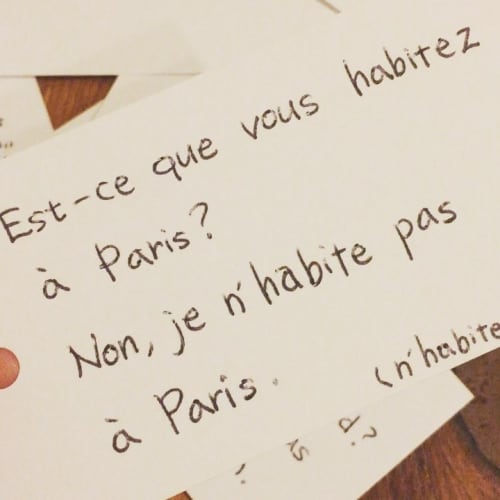 Est-ce que vous habitez
à Paris?
Non, je n'habite pas
à Paris.
(n'habite